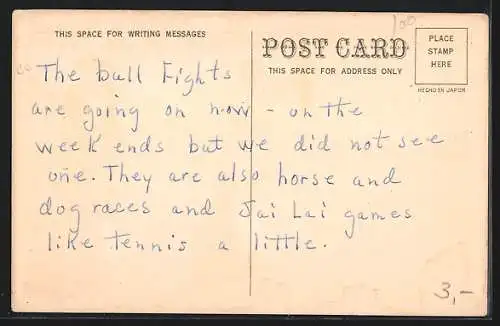 THIS SPACE FOR WRITING MESSAGES
POST CARD
THIS SPACE FOR ADDRESS ONLY
PLACE
STAMP
HERE
HECHO EN JAPON
100
The bull Fights
are going on now - on the
week ends but we did not see
one. They are also horse and
dog races and Jai Lai games
like tennis a little.
3,-